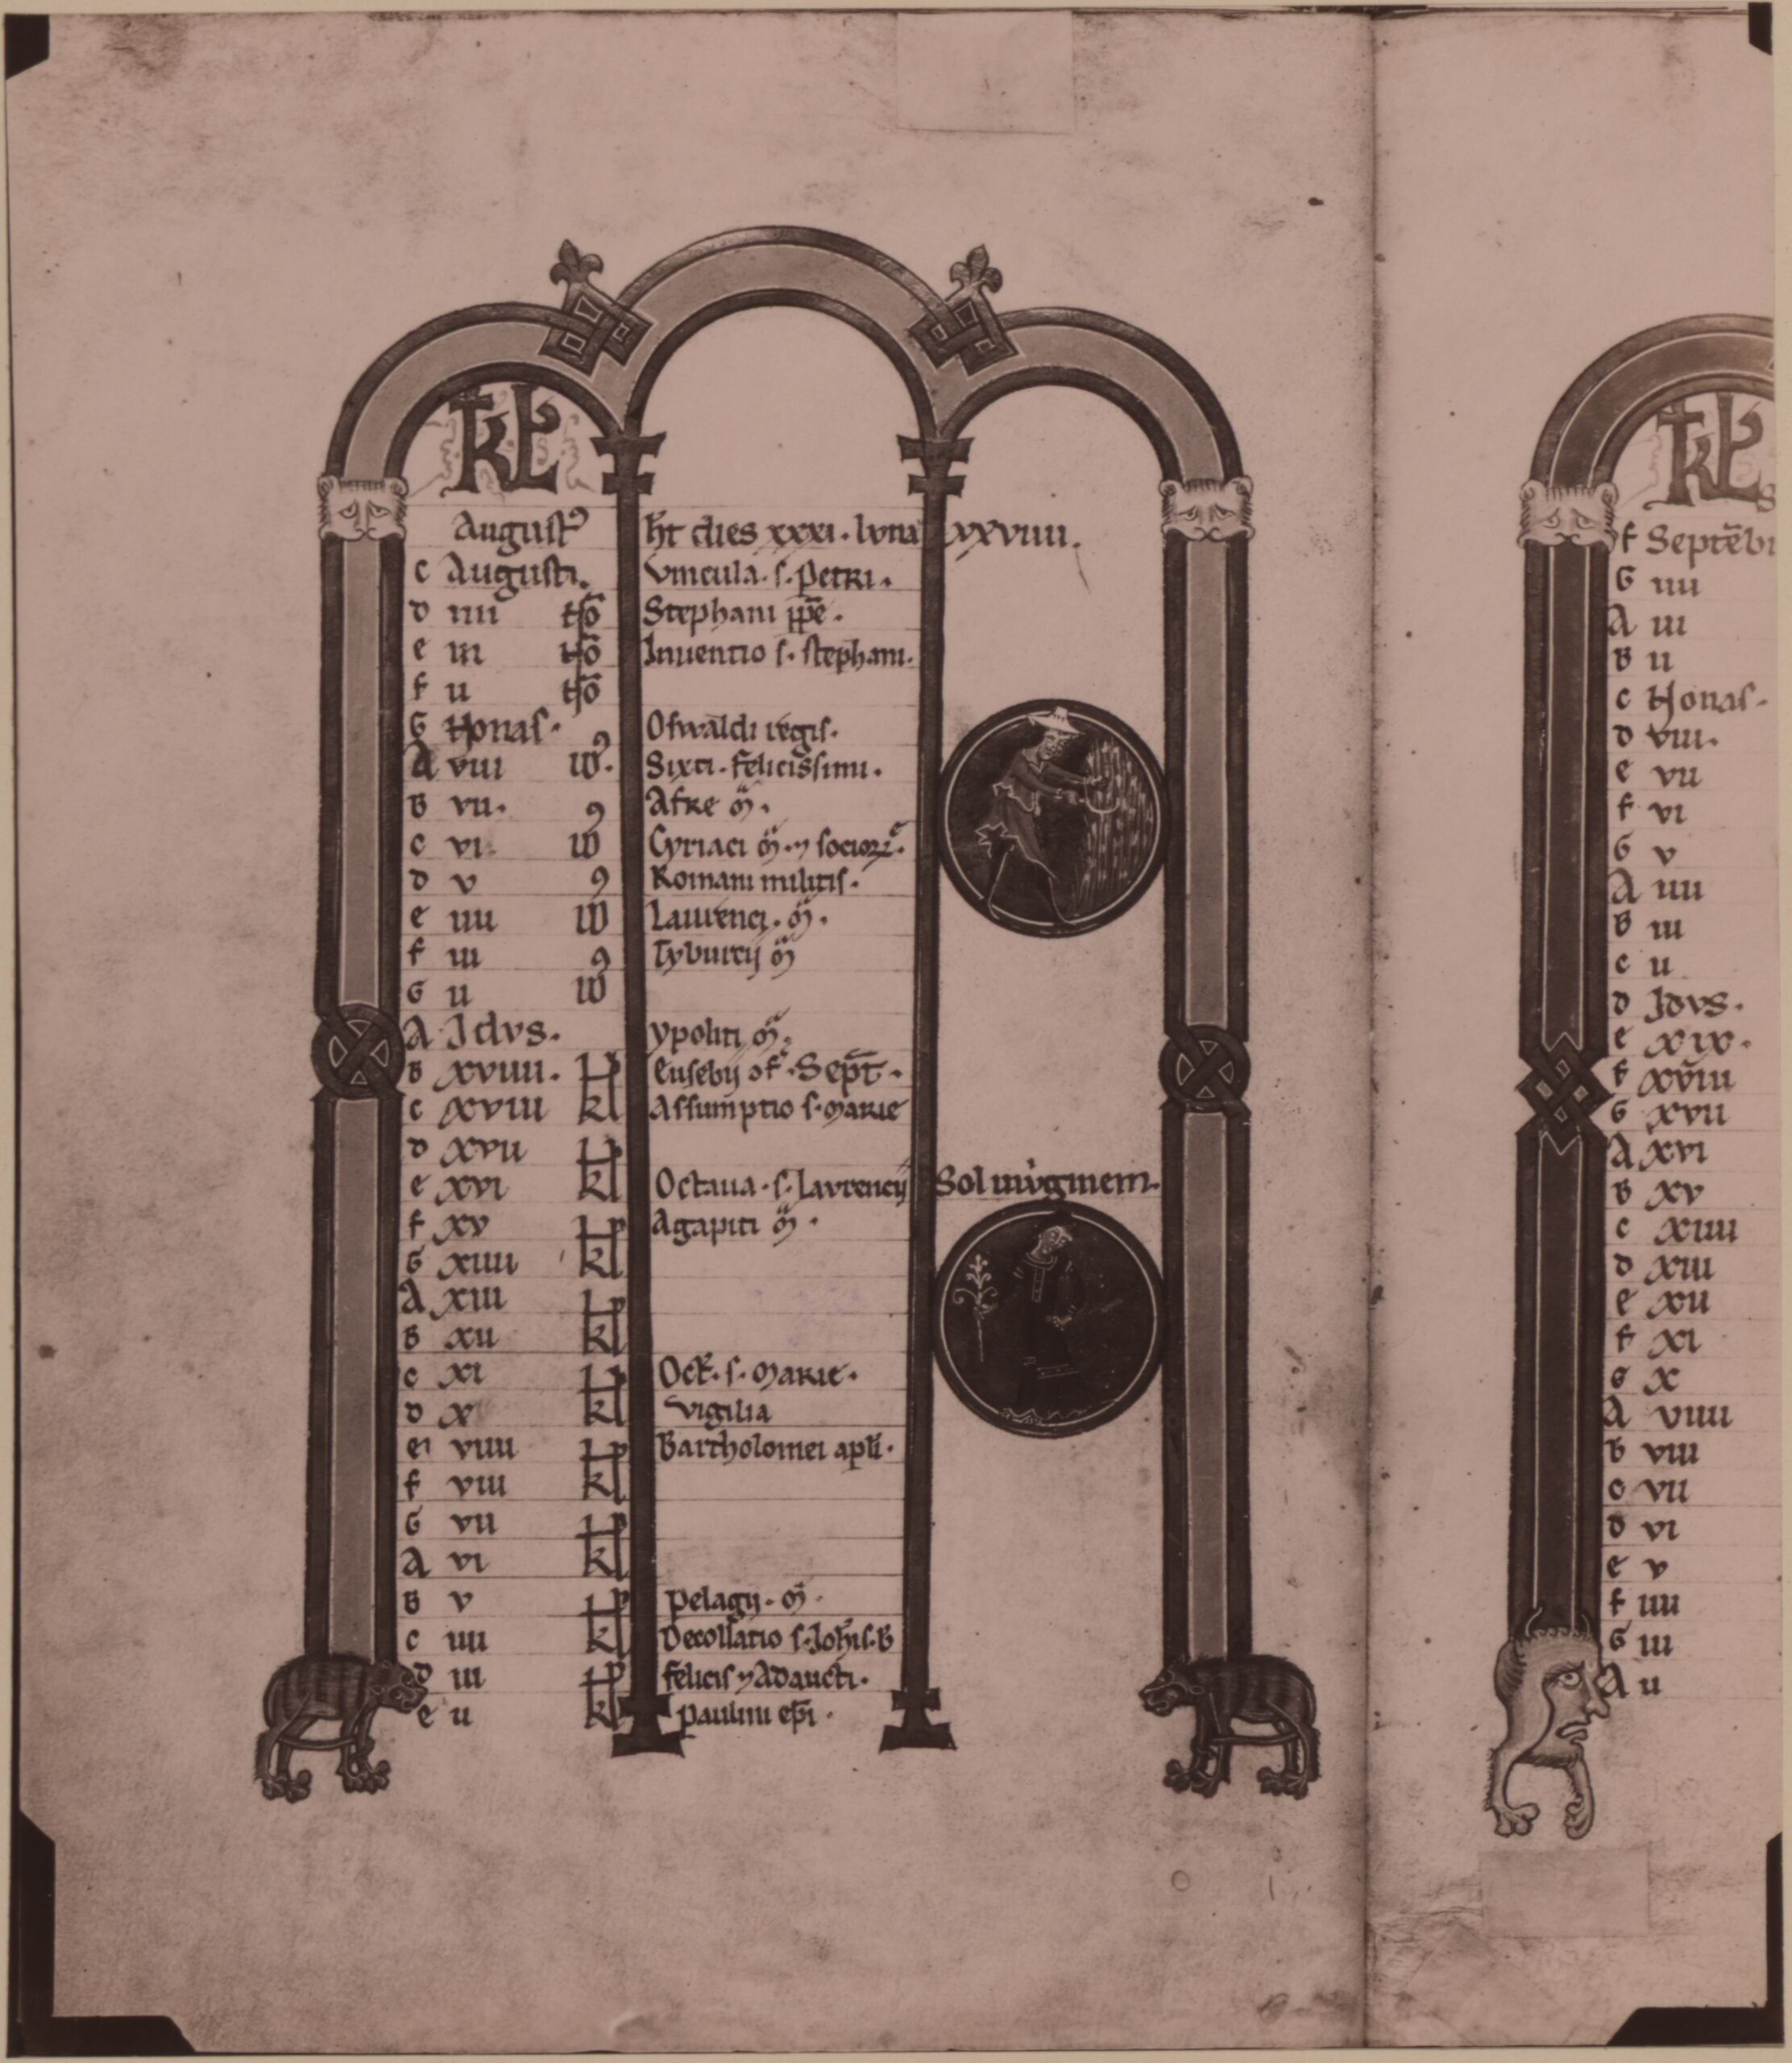 KL
August⁹ ht dies xxxi. luna xxviiii.
c Augusti. Vincula. s. Petri.
d iiii No Stephani ppe.
e iii No Inuentio s. stephani.
f ii No
G Nonas. Oswaldi regis.
A viii id⁹. Sixti. felicissimi.
B vii. Afre m̄.
c vi id Cyriaci m̄. 7 socioꝝ.
d v Romani militis.
e iiii id Laurenci. m̄.
f iii Tyburcij m̄
G ii id
A Idvs. ypoliti m̄.
B xviiii. kl Eusebij of. Sept.
c xviii kl Assumptio s. Marie
d xvii kl
e xvi kl Octaua. s. Laurencij Sol in virginem.
f xv kl Agapiti m̄.
G xiiii kl
A xiii kl
B xii kl
c xi kl Oct. s. Marie.
d x kl Vigilia
e viiii kl Bartholomei apli.
f viii kl
G vii kl
A vi kl
B v kl Pelagij. m̄.
c iiii kl Decollatio s. Johis. B
d iii kl felicis 7 Adaucti.
e ii kl Paulini epi.
KL
f Septēb
G iiii
A iii
B ii
c Nonas.
d viii.
e vii
f vi
G v
A iiii
B iii
c ii
d Idvs.
e xix.
f xviii
G xvii
A xvi
B xv
c xiiii
d xiii
e xii
f xi
G x
A viiii
B viii
c vii
d vi
e v
f iiii
G iii
A ii